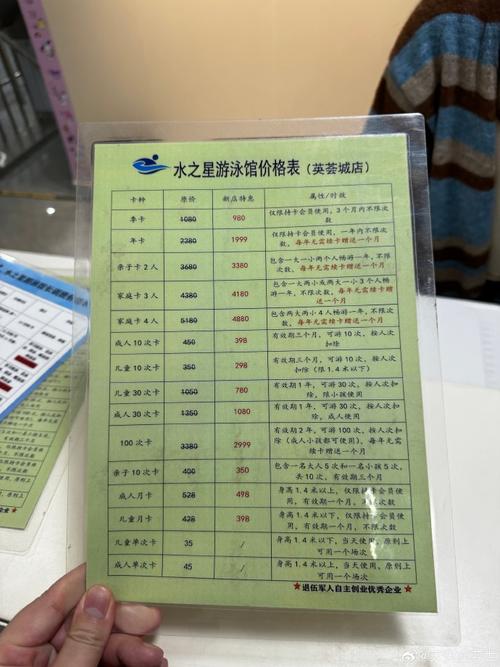 水之星游泳馆价格表（英荟城店）
卡种 原价 新店特惠 属性/时效
季卡 1080 980 仅限持卡会员使用，3个月内不限次数
年卡 2380 1999 仅限持卡会员使用，一年内不限次
数，每年无需续卡赠送一个月
亲子卡2人 3680 3380 包含一大一小两个人畅游一年，不限
次数，每年无需续卡赠送一个月
家庭卡3人 4380 4180 包含一大两小或两大一小3个人畅
游一年，不限次数，每年无需续卡赠
送一个月
家庭卡4人 5180 4880 包含两大两小4人畅游一年，不限次
数，每年无需续卡赠送一个月
成人10次卡 450 398 有效期三个月，可游10次，按人次
扣除
儿童10次卡 350 298 有效期三个月，可游10次，按人次
扣除（限1.4米以下）
儿童30次卡 1050 780 有效期1年，可游30次，按人次扣
除，限小孩使用
成人30次卡 1350 1080 有效期1年，可游30次，按人次扣
除，成人使用
100次卡 3380 2999 有效期2年，可游100次，按人次扣
除（成人小孩都可使用），每年无需
续卡赠送一个月
亲子10次卡 400 350 包含一名大人5次和一名小孩5次，
共10次，有效期三个月
成人月卡 528 498 身高1.4米以上，仅限持卡会员使
用，有效期一个月，不限次数
儿童月卡 428 398 身高1.4米以下，仅限持卡会员使
用，有效期一个月，不限次数
儿童单次卡 35 / 身高1.4米以下，当天使用，原则上
可用一个场次
成人单次卡 45 / 身高1.4米以上，当天使用，原则上
可用一个场次
★退伍军人自主创业优秀企业★